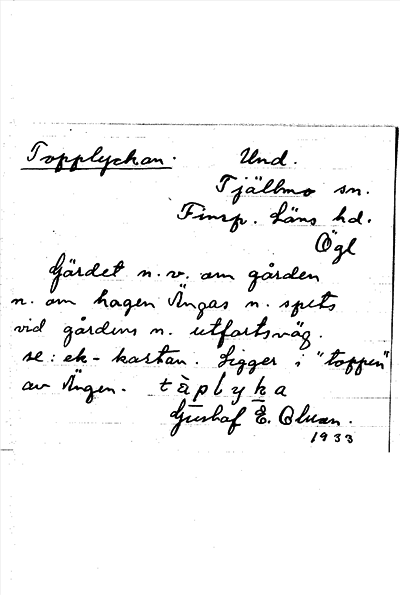 Topplyckan. Und.
Tjällmo sn.
Finsp. Läns hd.
Ögl
Gärdet n. v. om gården
n. om hagen Ängas n. spets
vid gårdens n. utfartsväg.
se: ek-kartan. Ligger i "toppen"
av Ängen. tàplyka
Gustaf E. Olsson.
1933